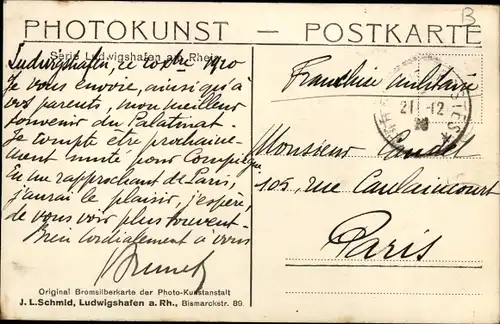 PHOTOKUNST - POSTKARTE
B
Serie Ludwigshafen am Rhein
Ludwigshafen, ce xbre 1920
Je vous envoie, ainsi qu'à
vos parents, mon meilleur
souvenir du Palatinat.
Je compte être prochaine-
ment muté pour Compiègne
En me rapprochant de Paris,
j'aurai le plaisir, j'espère,
de vous voir plus souvent.
Bien cordialement à vous
Brunet
Franchise militaire
21 -12
Monsieur
105, rue Caulaincourt
Paris
Original Bromsilberkarte der Photo-Kunstanstalt
J. L. Schmid, Ludwigshafen a. Rh., Bismarckstr. 89.